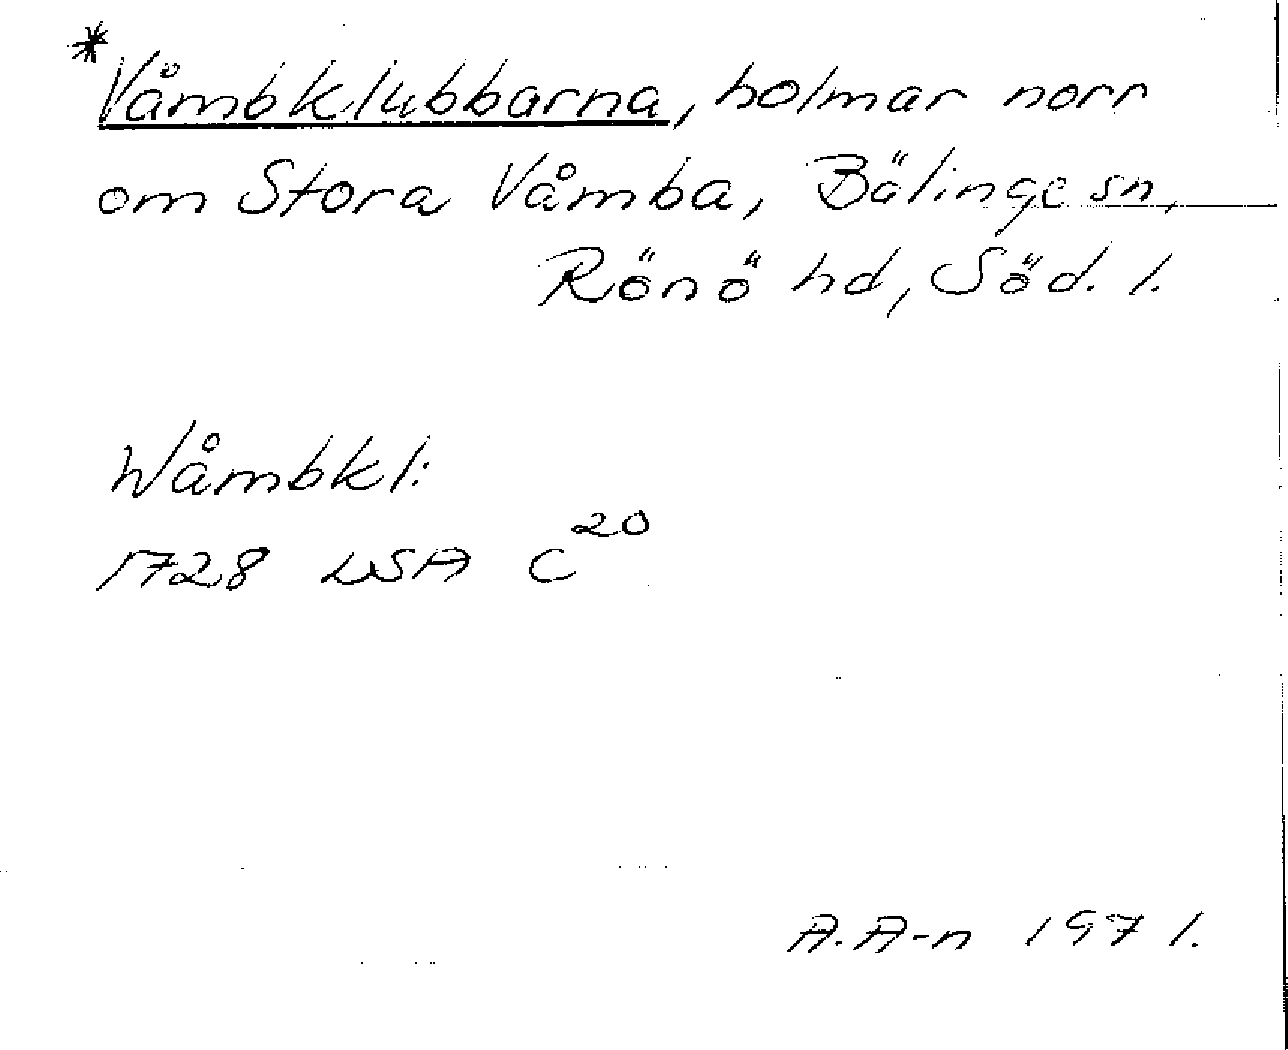 *Våmbklubbarna, holmar norr
om Stora Våmba, Bälinge sn,
Rönö hd, Söd. l.
Wåmbkl:
1728 LSA C²⁰
A.A-n 1971.